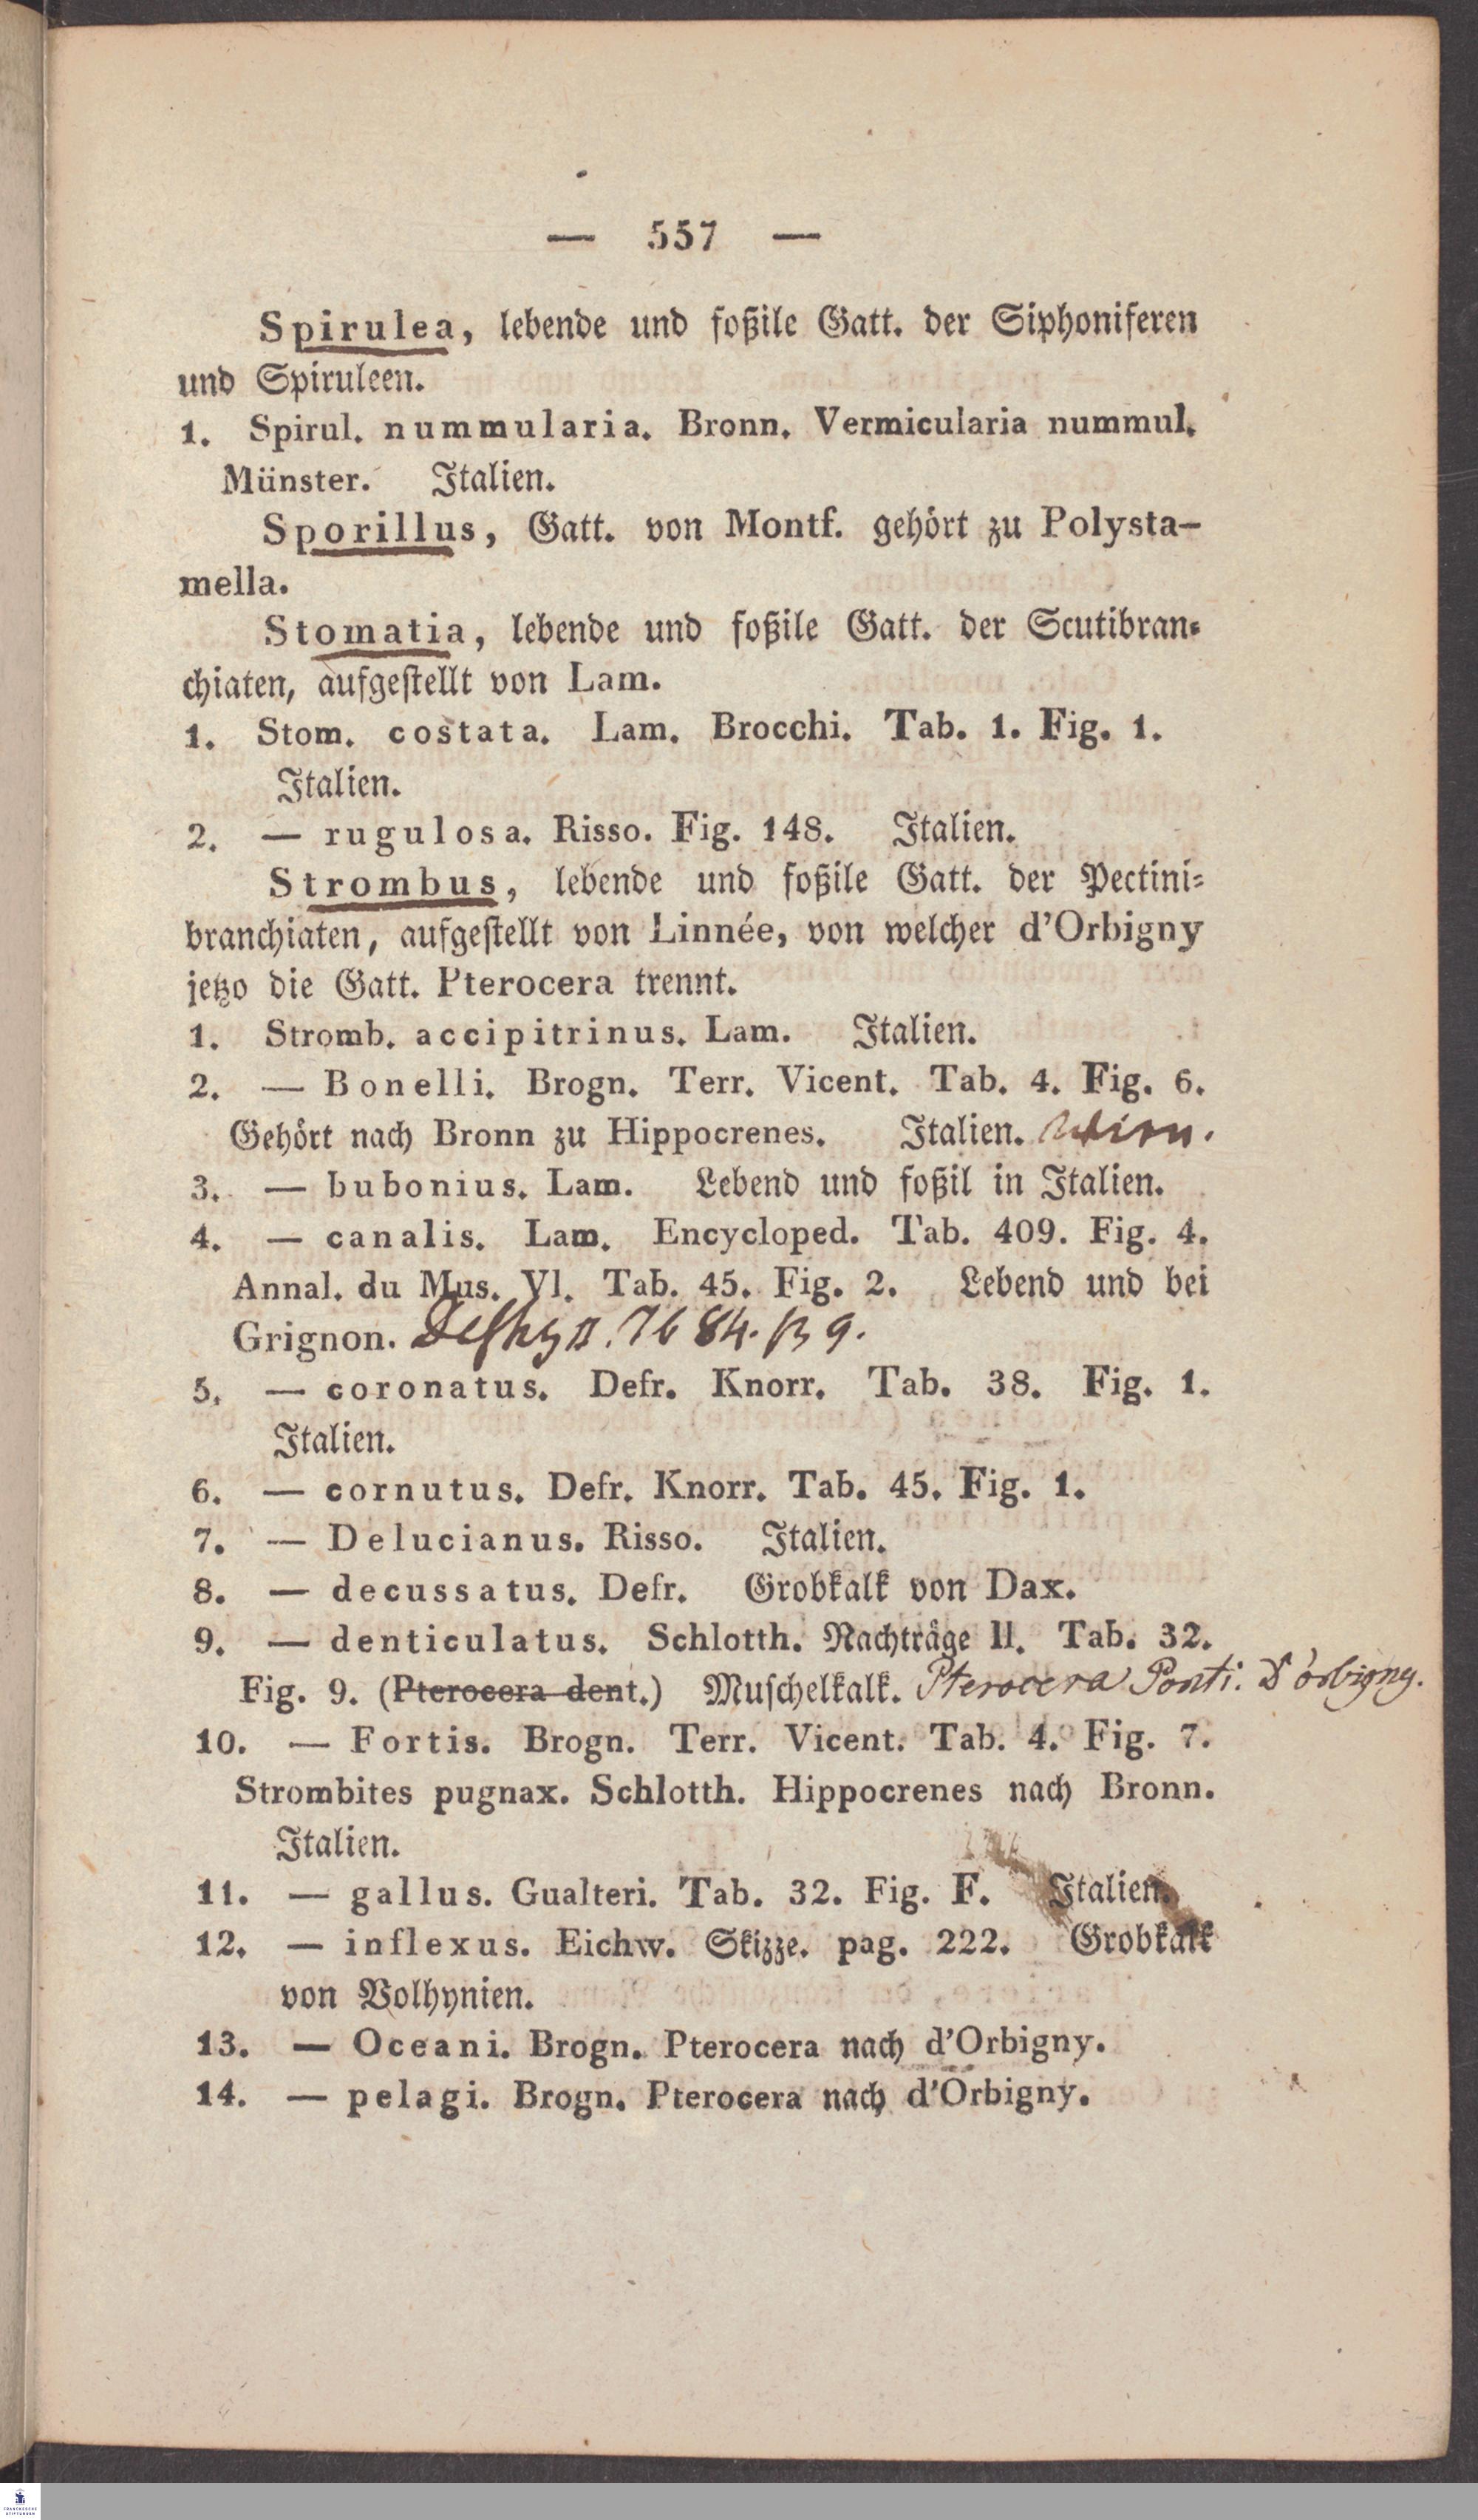 — 557 —
Spirulea, lebende und foßile Gatt. der Siphoniferen
und Spiruleen.
1. Spirul. nummularia. Bronn. Vermicularia nummul.
Münster. Italien.
Sporillus, Gatt. von Montf. gehört zu Polysta-
mella.
Stomatia, lebende und foßile Gatt. der Scutibran-
chiaten, aufgestellt von Lam.
1. Stom. costata. Lam. Brocchi. Tab. 1. Fig. 1.
Italien.
2. — rugulosa. Risso. Fig. 148. Italien.
Strombus, lebende und foßile Gatt. der Pectini-
branchiaten, aufgestellt von Linnée, von welcher d'Orbigny
jetzo die Gatt. Pterocera trennt.
1. Stromb. accipitrinus. Lam. Italien.
2. — Bonelli. Brogn. Terr. Vicent. Tab. 4. Fig. 6.
Gehört nach Bronn zu Hippocrenes. Italien. Wien.
3. — bubonius. Lam. Lebend und foßil in Italien.
4. — canalis. Lam. Encycloped. Tab. 409. Fig. 4.
Annal. du Mus. Vl. Tab. 45. Fig. 2. Lebend und bei
Grignon. 84. 9.
5. — coronatus. Defr. Knorr. Tab. 38. Fig. 1.
Italien.
6. — cornutus. Defr. Knorr. Tab. 45. Fig. 1.
7. — Delucianus. Risso. Italien.
8. — decussatus. Defr. Grobkalk von Dax.
9. — denticulatus. Schlotth. Nachträge ll. Tab. 32.
Fig. 9. (Pterocera dent.) Muschelkalk. Pterocera Ponti. D'orbigny.
10. — Fortis. Brogn. Terr. Vicent. Tab. 4. Fig. 7.
Strombites pugnax. Schlotth. Hippocrenes nach Bronn.
Italien.
11. — gallus. Gualteri. Tab. 32. Fig. F. Italien.
12. — inflexus. Eichw. Skizze. pag. 222. Grobkalk
von Volhynien.
13. — Oceani. Brogn. Pterocera nach d'Orbigny.
14. — pelagi. Brogn. Pterocera nach d'Orbigny.
FRANCKESCHE
STIFTUNGEN